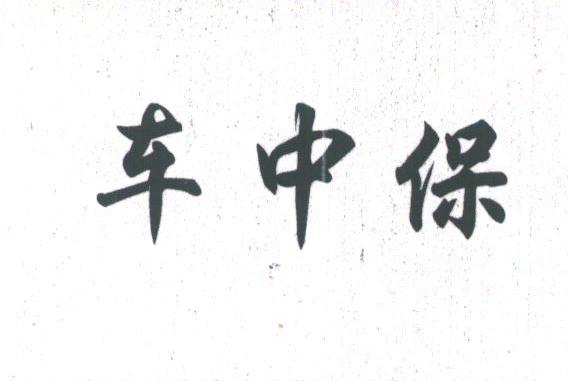 车中保